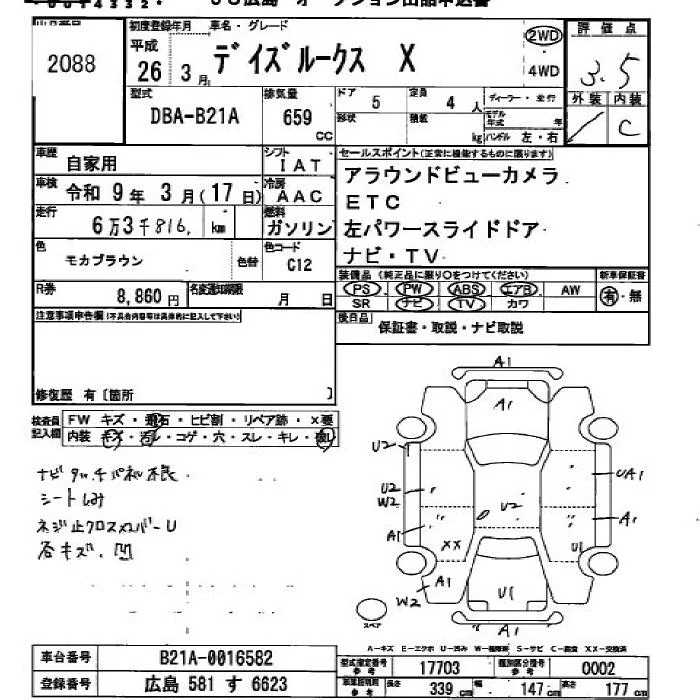 初度登録年月 車名・グレード 評価点
2088 平成 26年 3月 デイズルークス X 2WD・4WD 3.5
外装 内装
C
型式 DBA-B21A 排気量 659 CC ドア 5 定員 4 人 ディーラー・並行
形状 積載 kg モデル年式 年 ハンドル 左・右
車歴 自家用 シフト IAT
車検 令和 9年 3月(17日) 冷房 AAC
走行 6万3千816 km 燃料 ガソリン
色 モカブラウン 色替 色コード C12
R券 8,860円 名変通知期限 月 日
セールスポイント(正常に機能するものに限ります)
アラウンドビューカメラ
ETC
左パワースライドドア
ナビ・TV
装備品(純正品に限り○をつけてください) 新車保証書
PS PW ABS エアB AW 有・無
SR ナビ TV カワ
後日品 保証書・取説・ナビ取説
注意事項申告欄(不具合内容等は具体的に記入して下さい)
修復歴 有〔箇所 〕
検査員記入欄 FW キズ・飛石・ヒビ割・リペア跡・X要
内装 キズ・汚レ・コゲ・穴・スレ・キレ・
ナビタッチパネル不良
シートしみ
ネジ止クロスメンバーU
各キズ、凹
A1
A1
U2
U2
W2
A1
UA1
A1
U2
XX
U1
A1
W2
U1
A1
スペア
A−キズ E−エクボ U−凹み W−補修跡 S−サビ C−腐食 XX−交換済
車台番号 B21A-0016582
登録番号 広島 581 す 6623
型式指定番号 参考 17703 類別区分番号 参考 0002
長さ 339 cm 幅 147 cm 高さ 177 cm